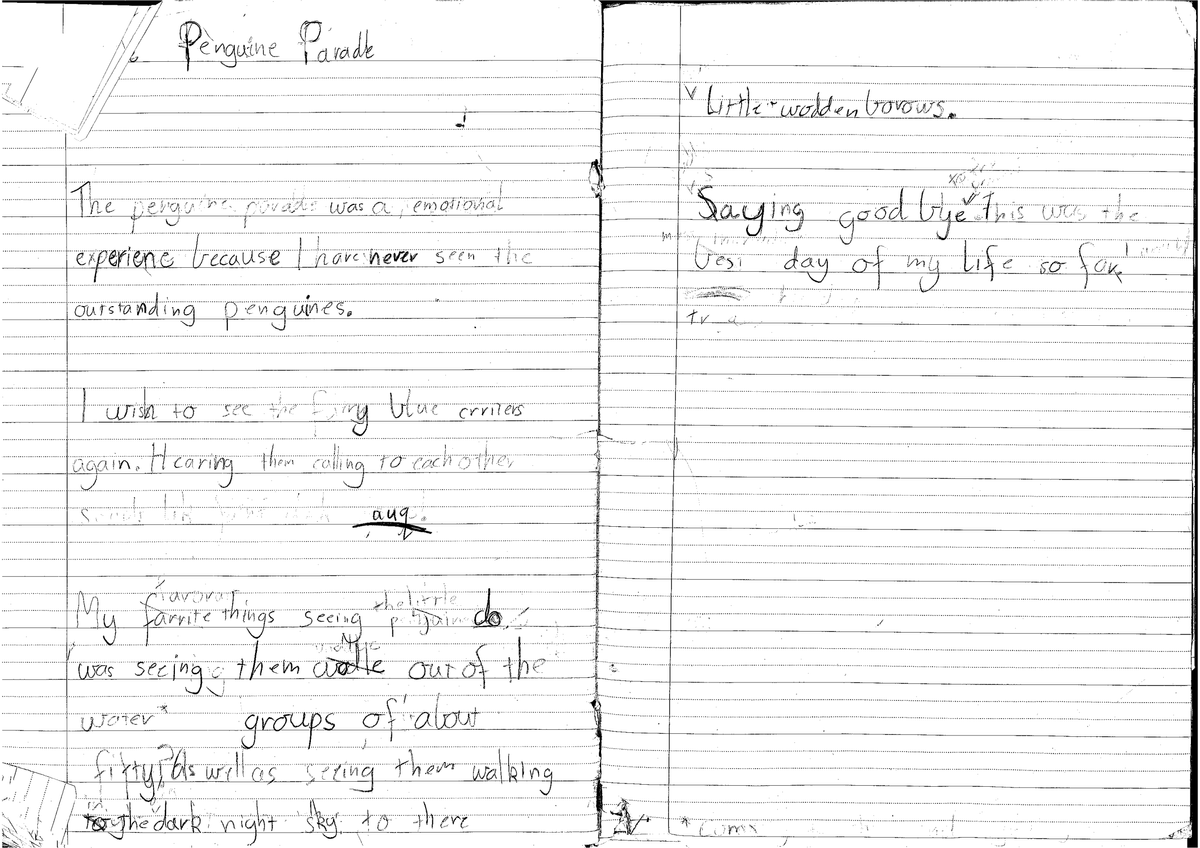 Penguine Parade
The penguine parade was a emotional
experienc because I have never seen the
outstanding penguines.
I wish to see the blue
again. Hearing them calling to each other
auq!
the little
My farrite things seeing do
was seeing them wodle out of the
water* groups of about
fifty? As well as seeing them walking
the dark night sky to there
Little wodden borows.
Saying good bye This was the
best day of my life so far